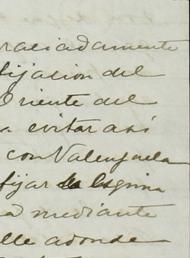 raciadamente
fijacion del
Oriente del
a evitar asi
con Valenzuela
fijar la Esquina
a mediante
lle adonde